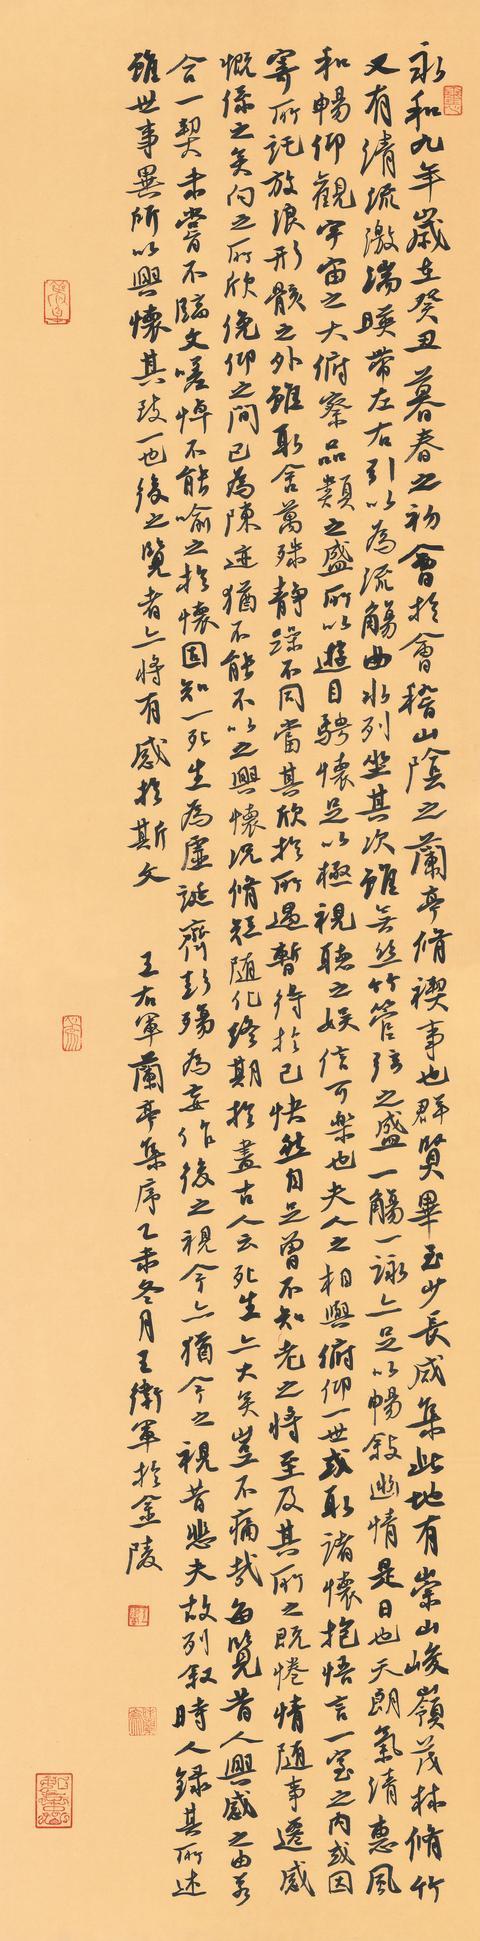 永和九年歲在癸丑暮春之初會於會稽山陰之蘭亭脩禊事也群賢畢至少長咸集此地有崇山峻嶺茂林脩竹
又有清流激湍暎帶左右引以為流觴曲水列坐其次雖無絲竹管弦之盛一觴一詠亦足以暢敘幽情是日也天朗氣清惠風
和暢仰觀宇宙之大俯察品類之盛所以遊目騁懷足以極視聽之娛信可樂也夫人之相與俯仰一世或取諸懷抱悟言一室之內或因
寄所託放浪形骸之外雖取舍萬殊靜躁不同當其欣於所遇暫得於己快然自足曾不知老之將至及其所之既惓情隨事遷感
慨係之矣向之所欣俛仰之間已為陳迹猶不能不以之興懷況脩短隨化終期於盡古人云死生亦大矣豈不痛哉每覽昔人興感之由若
合一契未嘗不臨文嗟悼不能喻之於懷固知一死生為虛誕齊彭殤為妄作後之視今亦猶今之視昔悲夫故列叙時人錄其所述
雖世事異所以興懷其致一也後之覽者亦將有感於斯文 王右軍蘭亭集序乙未冬月王衛軍於金陵